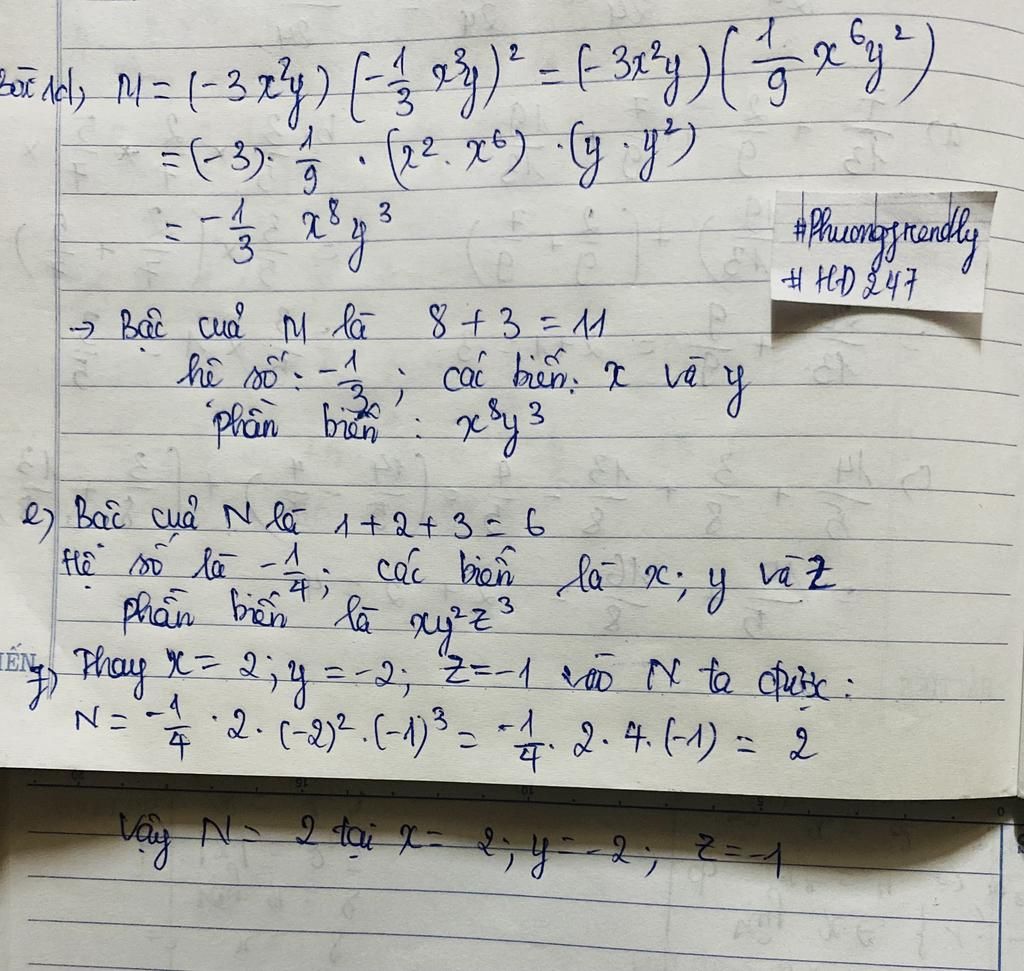 Bài 1d, M = (-3x²y) (-1/3 x³y)² = (-3x²y) (1/9 x⁶y²)
= (-3) · 1/9 · (x² · x⁶) · (y · y²)
= -1/3 x⁸y³
#Phuongfrendly
# HD 247
→ Bậc cuả M là 8 + 3 = 11
hê số: -1/3; các biến: x và y
phần biến : x⁸y³
e) Bậc cuả N là 1 + 2 + 3 = 6
Hệ số là -1/4; các biến là x; y và z
phần biến là xy²z³
IẾN
f) Thay x = 2; y = -2; z = -1 vào N ta được:
N = -1/4 · 2 · (-2)² · (-1)³ = -1/4 · 2 · 4 · (-1) = 2
Vậy N = 2 tại x = 2; y = -2; z = -1